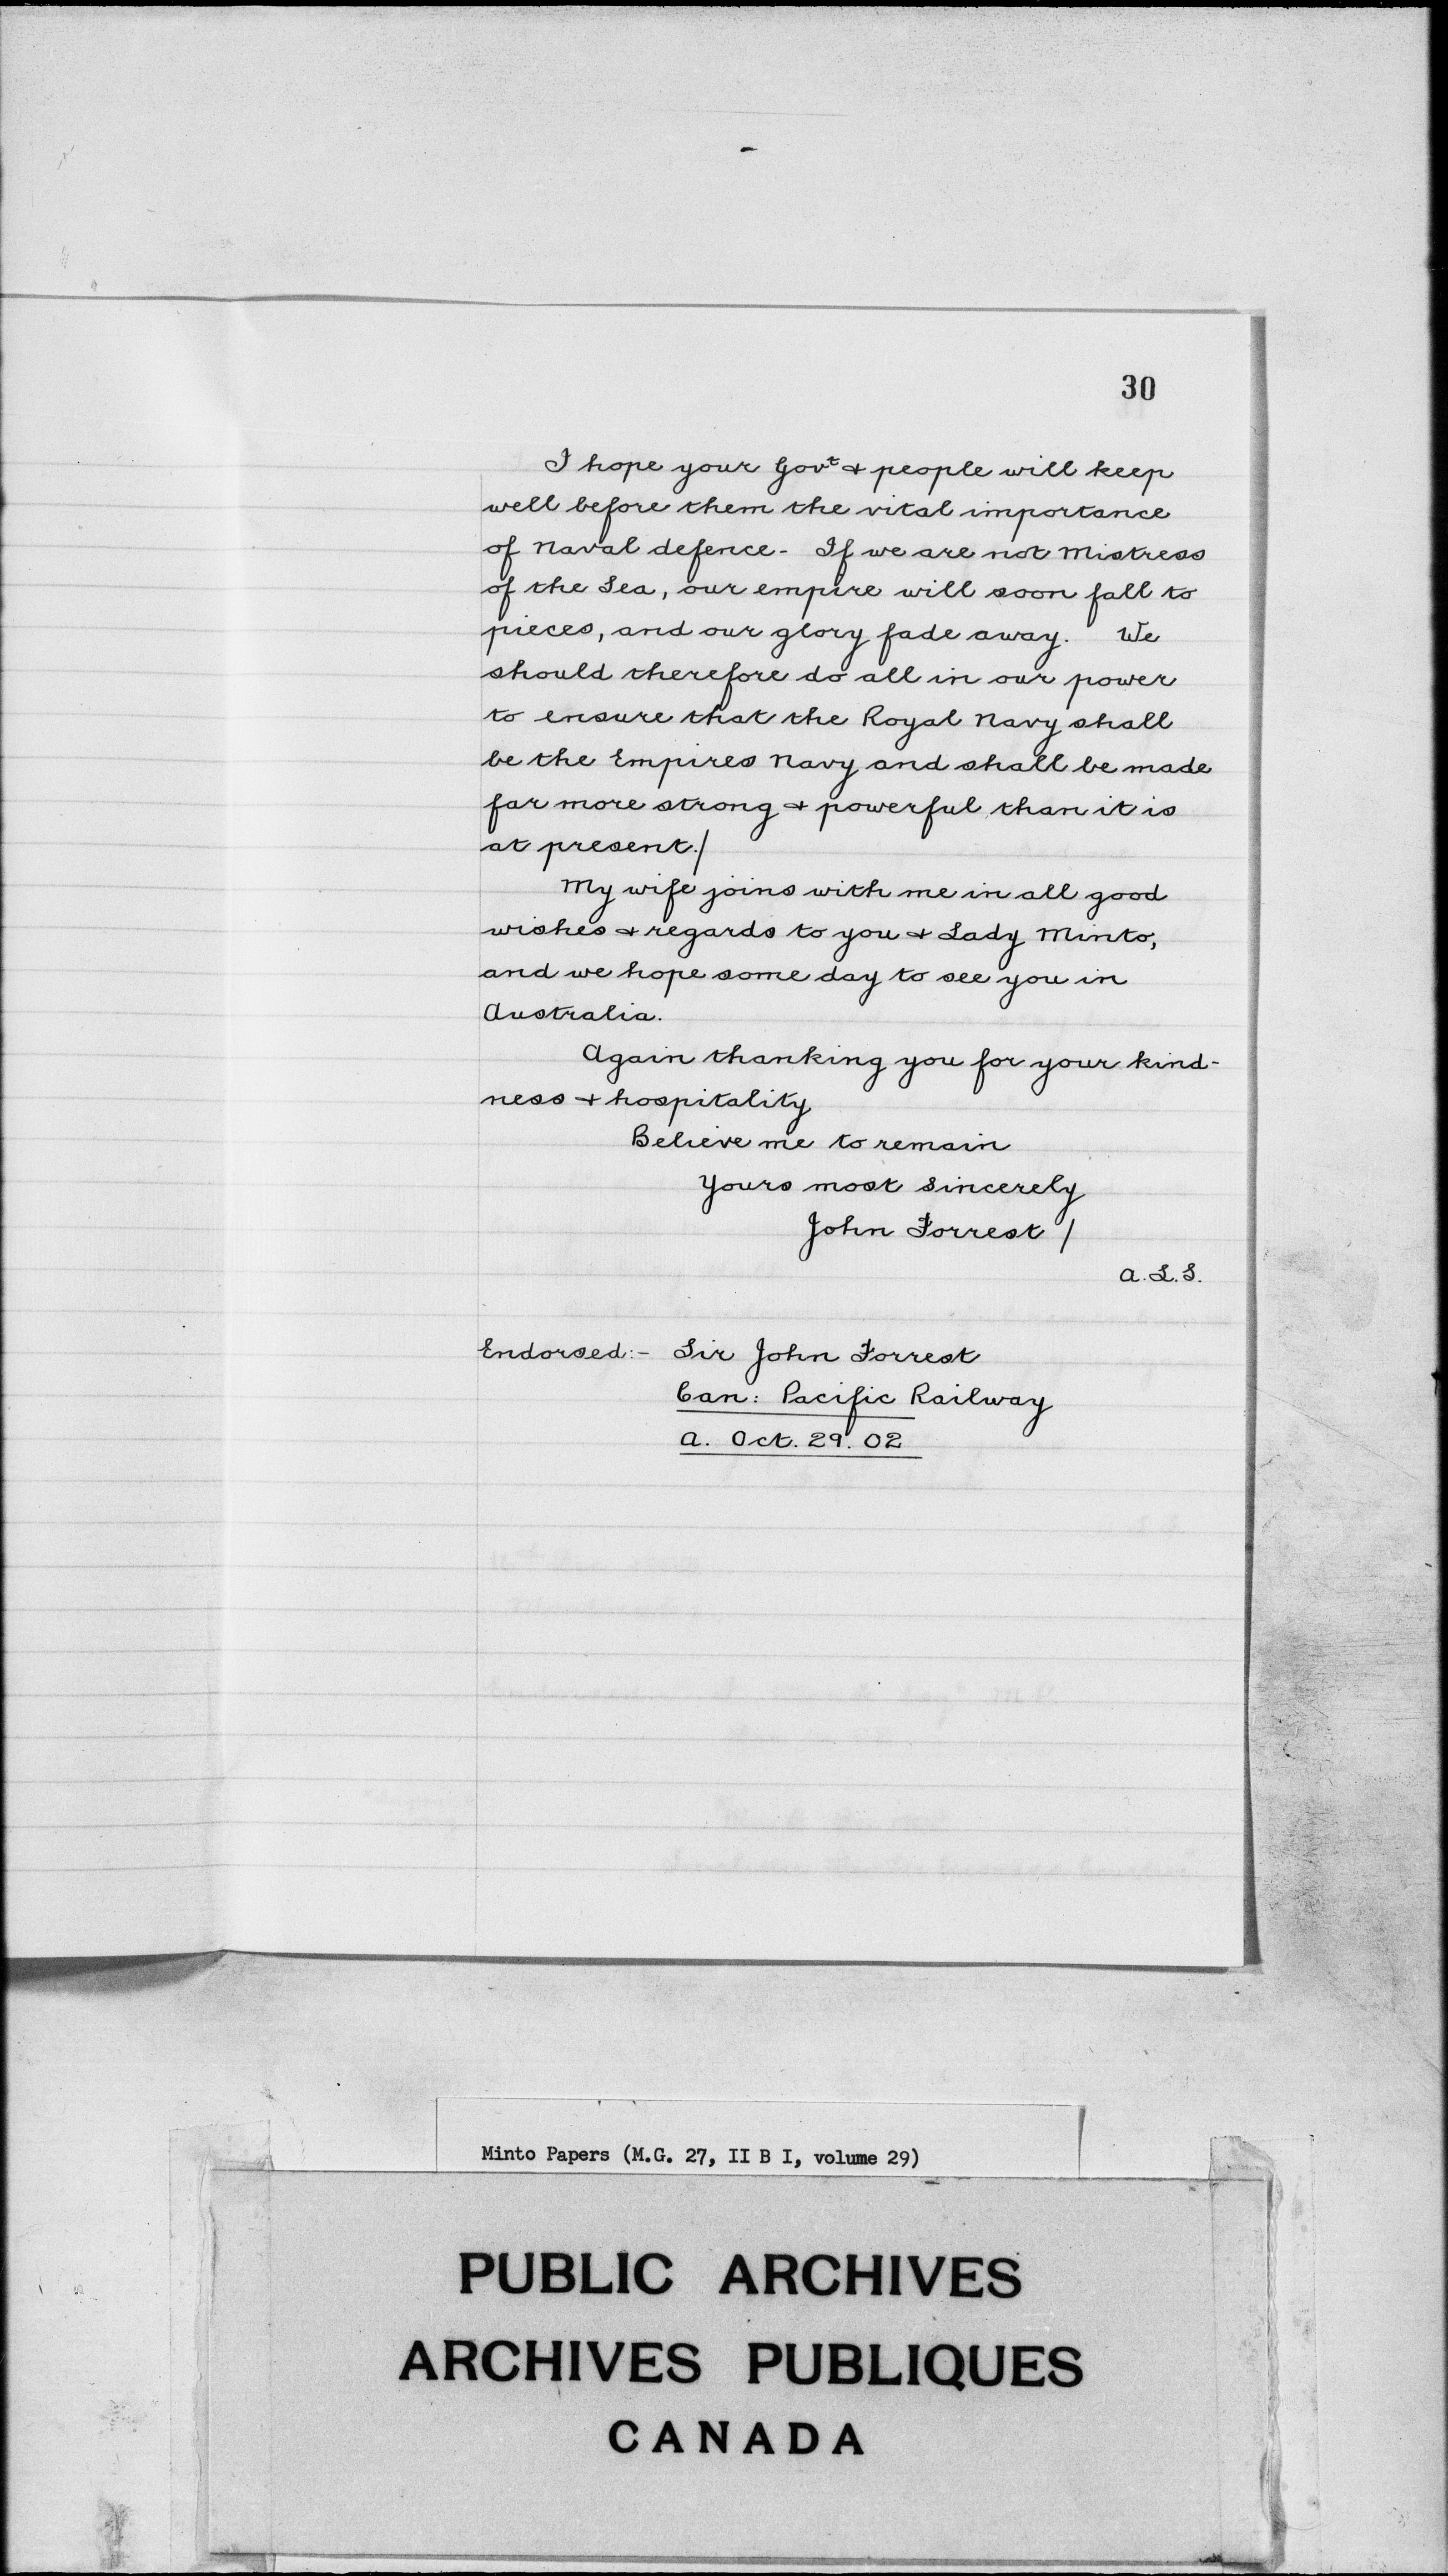 30
I hope your Govt & people will keep
well before them the vital importance
of Naval defence - If we are not Mistress
of the Sea, our empire will soon fall to
pieces, and our glory fade away. We
should therefore do all in our power
to ensure that the Royal Navy shall
be the Empires Navy and shall be made
far more strong & powerful than it is
at present./
My wife joins with me in all good
wishes & regards to you & Lady Minto,
and we hope some day to see you in
Australia.
Again thanking you for your kind-
ness & hospitality
Believe me to remain
Yours most sincerely
John Forrest /
A.L.S.
Endorsed:- Sir John Forrest
Can: Pacific Railway
A. Oct. 29. 02
Minto Papers (M.G. 27, II B I, volume 29)
PUBLIC ARCHIVES
ARCHIVES PUBLIQUES
CANADA